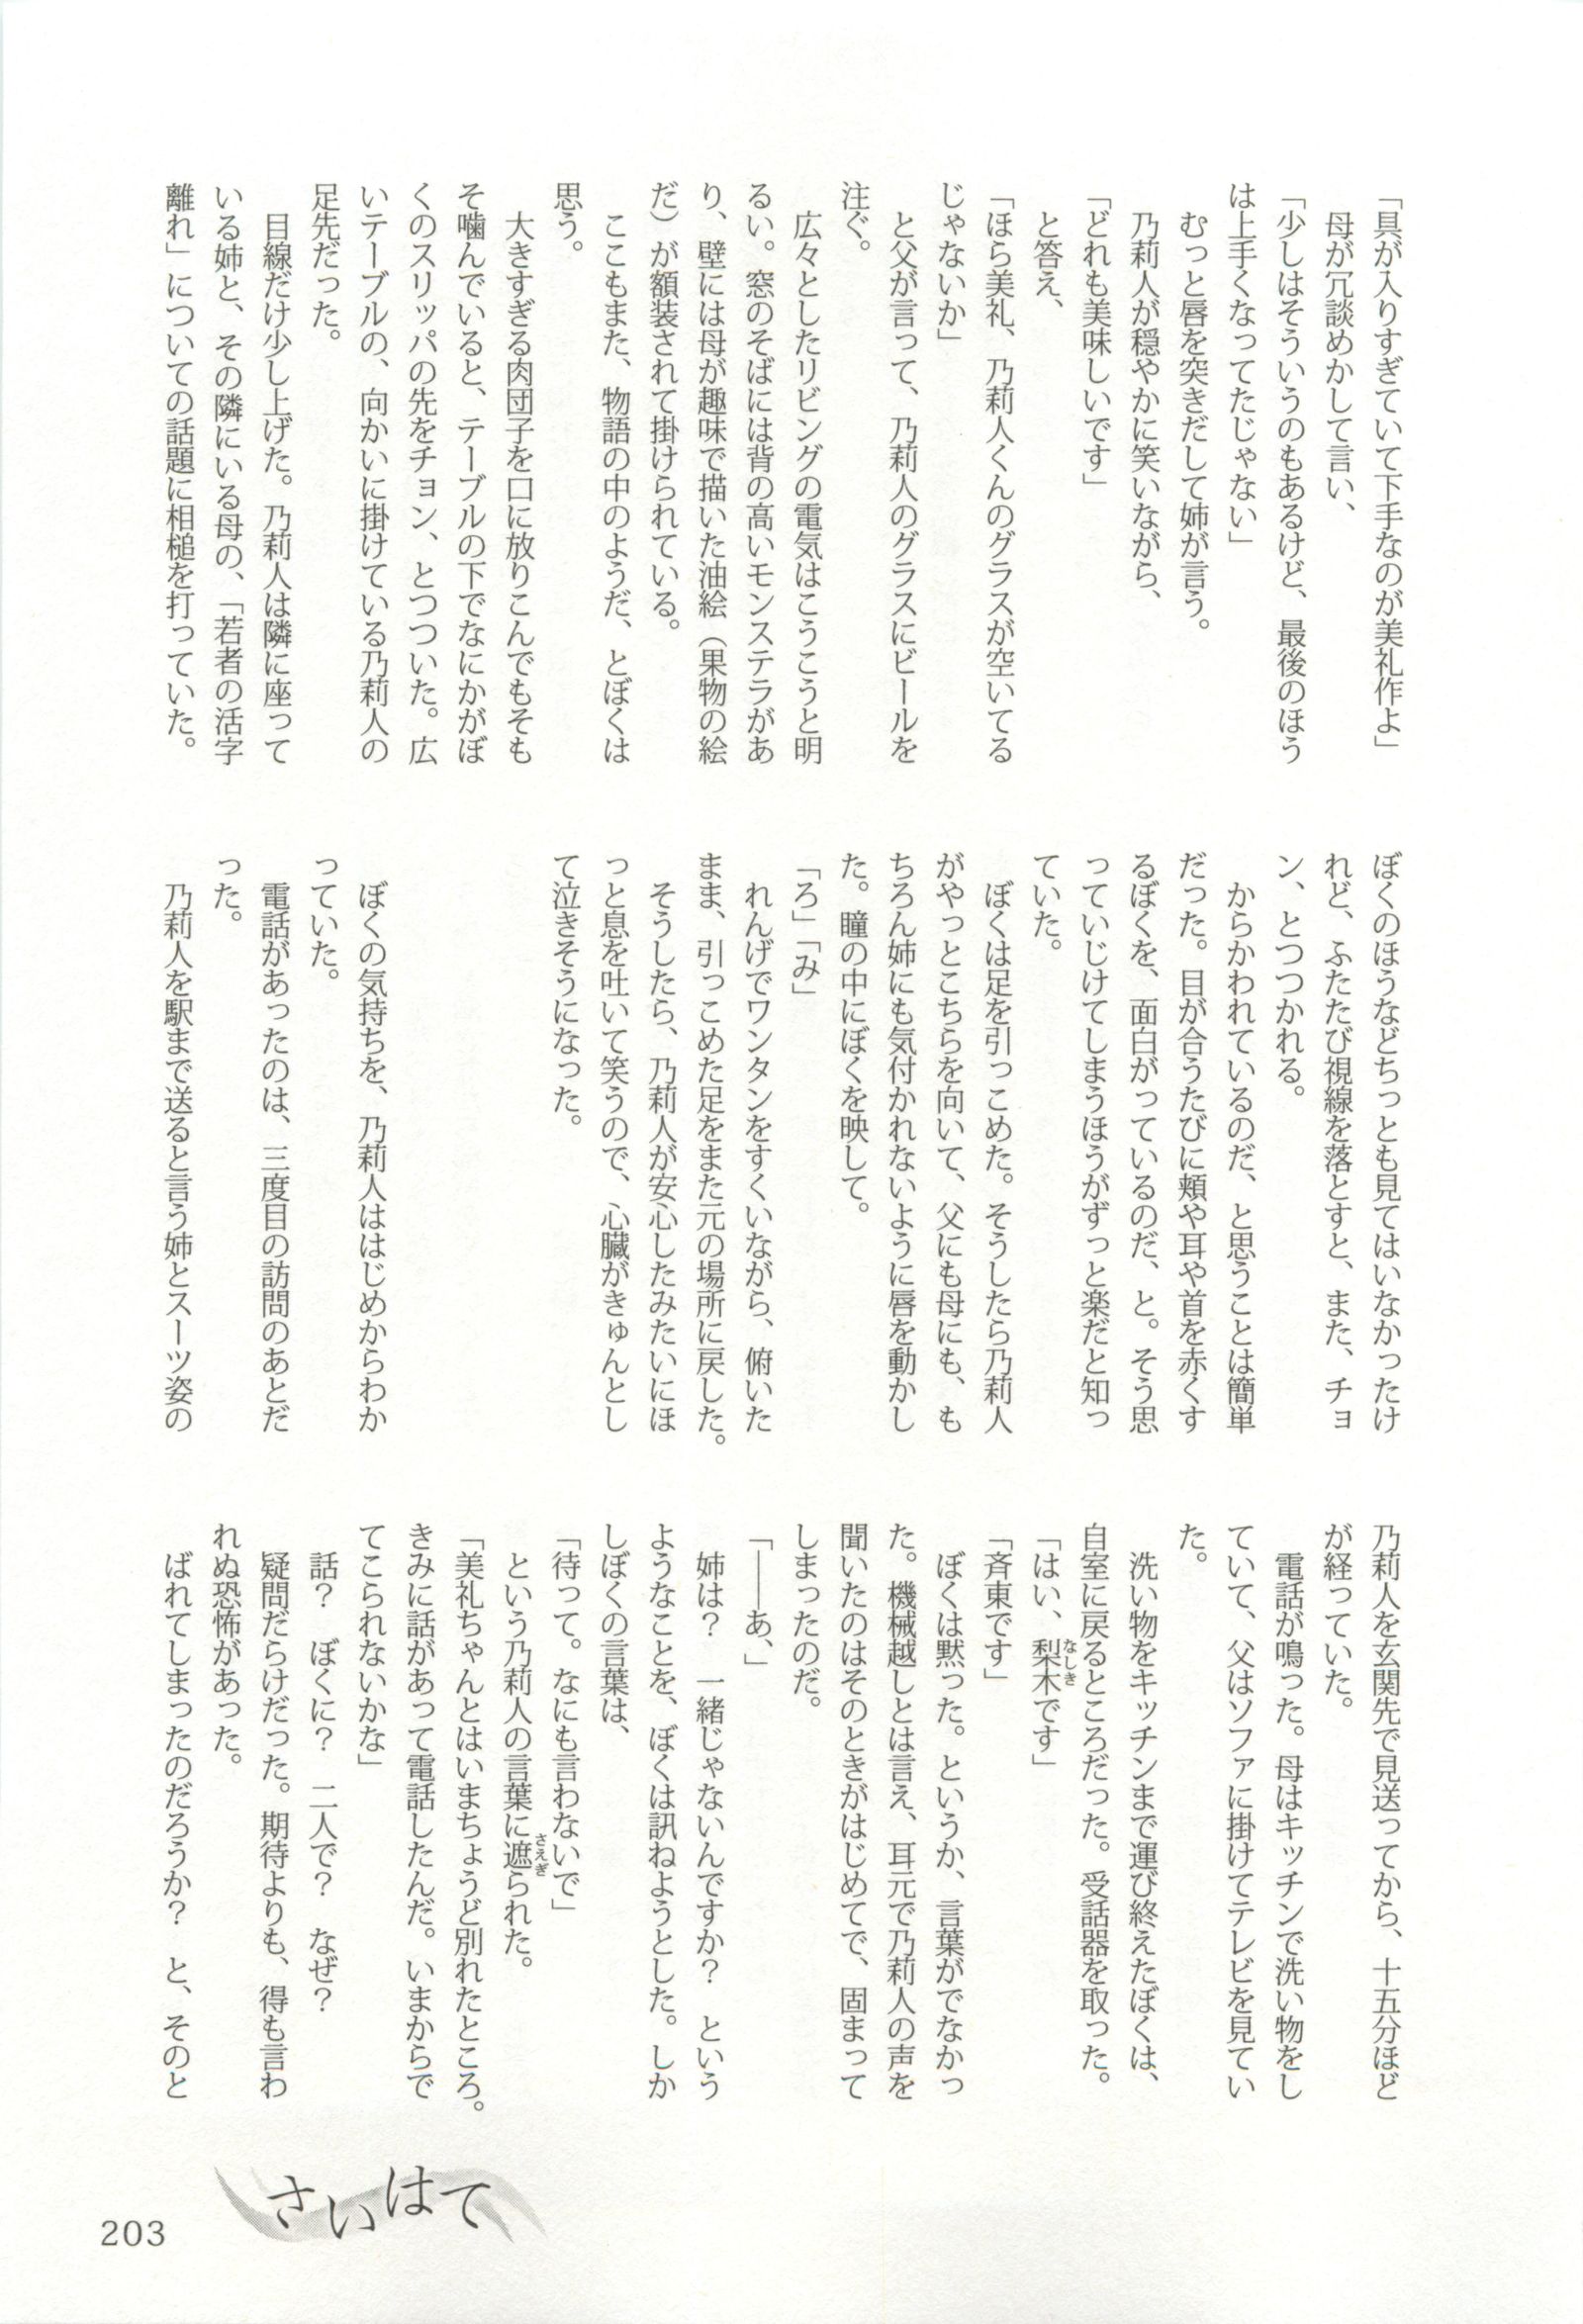 「具が入りすぎていて下手なのが美礼作よ」
　母が冗談めかして言い、
「少しはそういうのもあるけど、最後のほう
は上手くなってたじゃない」
　むっと唇を突きだして姉が言う。
　乃莉人が穏やかに笑いながら、
「どれも美味しいです」
　と答え、
「ほら美礼、乃莉人くんのグラスが空いてる
じゃないか」
　と父が言って、乃莉人のグラスにビールを
注ぐ。
　広々としたリビングの電気はこうこうと明
るい。窓のそばには背の高いモンステラがあ
り、壁には母が趣味で描いた油絵（果物の絵
だ）が額装されて掛けられている。
　ここもまた、物語の中のようだ、とぼくは
思う。
　大きすぎる肉団子を口に放りこんでもそも
そ噛んでいると、テーブルの下でなにかがぼ
くのスリッパの先をチョン、とつついた。広
いテーブルの、向かいに掛けている乃莉人の
足先だった。
　目線だけ少し上げた。乃莉人は隣に座って
いる姉と、その隣にいる母の、「若者の活字
離れ」についての話題に相槌を打っていた。
ぼくのほうなどちっとも見てはいなかったけ
れど、ふたたび視線を落とすと、また、チョ
ン、とつつかれる。
　からかわれているのだ、と思うことは簡単
だった。目が合うたびに頬や耳や首を赤くす
るぼくを、面白がっているのだ、と。そう思
っていじけてしまうほうがずっと楽だと知っ
ていた。
　ぼくは足を引っこめた。そうしたら乃莉人
がやっとこちらを向いて、父にも母にも、も
ちろん姉にも気付かれないように唇を動かし
た。瞳の中にぼくを映して。
「ろ」「み」
　れんげでワンタンをすくいながら、俯いた
まま、引っこめた足をまた元の場所に戻した。
　そうしたら、乃莉人が安心したみたいにほ
っと息を吐いて笑うので、心臓がきゅんとし
て泣きそうになった。
　ぼくの気持ちを、乃莉人ははじめからわか
っていた。
　電話があったのは、三度目の訪問のあとだ
った。
　乃莉人を駅まで送ると言う姉とスーツ姿の
乃莉人を玄関先で見送ってから、十五分ほど
が経っていた。
　電話が鳴った。母はキッチンで洗い物をし
ていて、父はソファに掛けてテレビを見てい
た。
　洗い物をキッチンまで運び終えたぼくは、
自室に戻るところだった。受話器を取った。
「はい、梨木なしきです」
「斉東です」
　ぼくは黙った。というか、言葉がでなかっ
た。機械越しとは言え、耳元で乃莉人の声を
聞いたのはそのときがはじめてで、固まって
しまったのだ。
「――あ、」
　姉は？　一緒じゃないんですか？　という
ようなことを、ぼくは訊ねようとした。しか
しぼくの言葉は、
「待って。なにも言わないで」
　という乃莉人の言葉に遮さえぎられた。
「美礼ちゃんとはいまちょうど別れたところ。
きみに話があって電話したんだ。いまからで
てこられないかな」
　話？　ぼくに？　二人で？　なぜ？
　疑問だらけだった。期待よりも、得も言わ
れぬ恐怖があった。
　ばれてしまったのだろうか？　と、そのと
さいはて
203